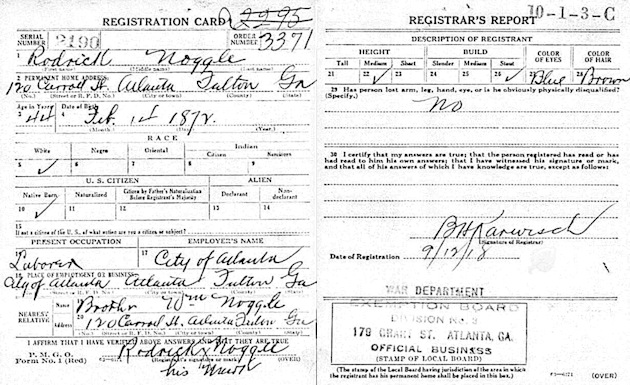 REGISTRATION CARD 2295
SERIAL NUMBER 2190 ORDER NUMBER 3371
1 Rodrick Noggle
(First name) (Middle name) (Last name)
2 PERMANENT HOME ADDRESS:
120 Carroll St. Atlanta Fulton Ga
(No.) (Street or R. F. D. No.) (City or town) (County) (State)
Age in Years Date of Birth
3 44 4 Feb. 14 1872.
(Month.) (Day.) (Year.)
RACE
White Negro Oriental Indian
Citizen Noncitizen
5 ✓ 6 7 8 9
U. S. CITIZEN ALIEN
Native Born Naturalized Citizen by Father's Naturalization Before Registrant's Majority Declarant Non-declarant
10 ✓ 11 12 13 14
15
If not a citizen of the U. S., of what nation are you a citizen or subject?
PRESENT OCCUPATION EMPLOYER'S NAME
16 Laborer 17 City of Atlanta
18 PLACE OF EMPLOYMENT OR BUSINESS:
City of Atlanta Atlanta Fulton Ga
(No.) (Street or R. F. D. No.) (City or town) (County) (State)
NEAREST RELATIVE Name 19 Brother Wm Noggle
Address 20 120 Carroll St. Atlanta Fulton Ga
(No.) (Street or R. F. D. No.) (City or town) (County) (State)
I AFFIRM THAT I HAVE VERIFIED ABOVE ANSWERS AND THAT THEY ARE TRUE
P. M. G. O.
Form No. 1 (Red)
Rodrick x Noggle
(Registrant's signature or mark)
his Mark
(OVER)
REGISTRAR'S REPORT 10-1-3-C
DESCRIPTION OF REGISTRANT
HEIGHT BUILD COLOR OF EYES COLOR OF HAIR
Tall Medium Short Slender Medium Stout
21 22 ✓ 23 24 25 26 ✓ 27 Blue 28 Brown
29 Has person lost arm, leg, hand, eye, or is he obviously physically disqualified?
(Specify.) No
30 I certify that my answers are true; that the person registered has read or has
had read to him his own answers; that I have witnessed his signature or mark,
and that all of his answers of which I have knowledge are true, except as follows:
B H Karwisch
(Signature of Registrar)
Date of Registration 9/12/18
WAR DEPARTMENT
EXEMPTION BOARD
DIVISION NO. 3
179 GRANT ST. ATLANTA, GA.
OFFICIAL BUSINESS
(STAMP OF LOCAL BOARD)
(The stamp of the Local Board having jurisdiction of the area in which
the registrant has his permanent home shall be placed in this box.)
(OVER)